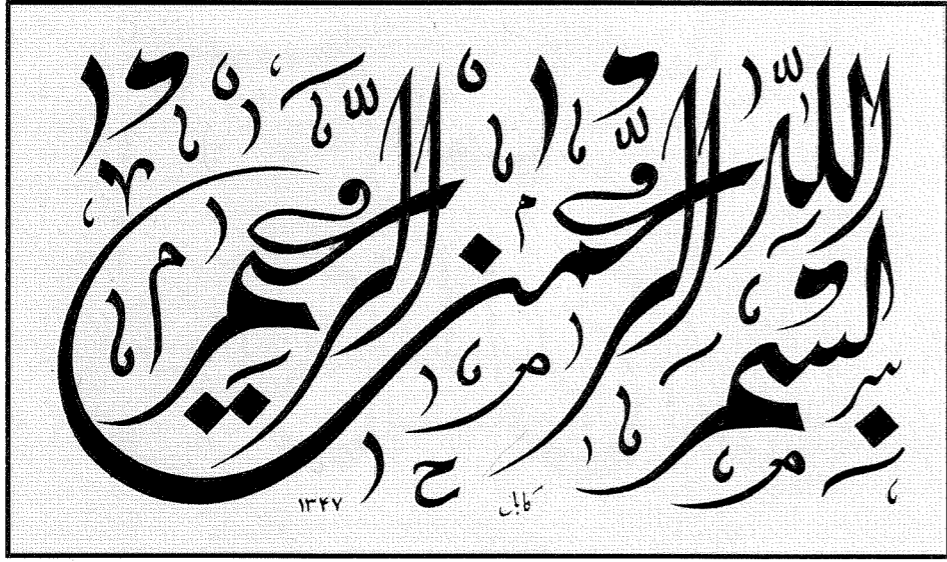 بسم الله الرحمن الرحيم
کابل
۱۳۴۷